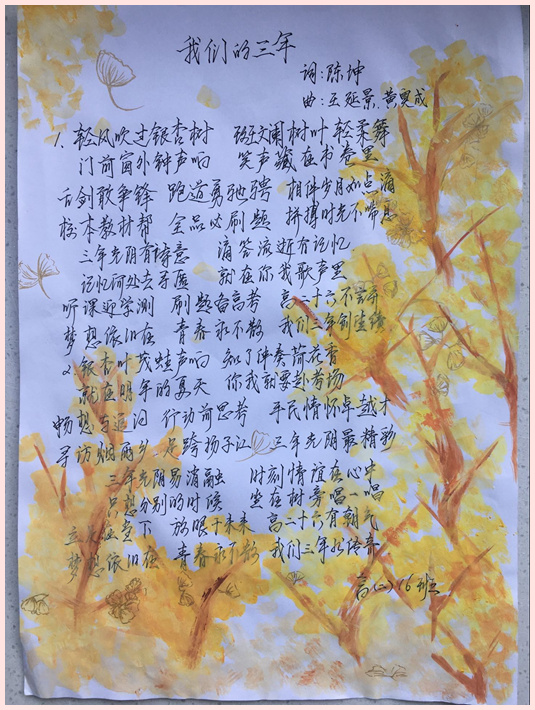 我们的三年
词:陈坤
曲:王延景,黄勇成
1. 轻风吹过银杏树 斑斓树叶轻柔舞
门前窗外钟声响 笑声藏在书卷里
舌剑敢争锋 跑道勇驰骋 相伴岁月如点滴
校本教材帮 全品必刷题 拼搏时光不喘息
三年光阴有诗意 滴答流逝有记忆
记忆何处去寻匿 就在你我歌声里
听课迎学测 刷题备高考 高二十六不
梦想依旧在 青春永不散 我们三年创佳绩
2. 银杏叶茂蛙声响 知了伴奏荷花香
就在明年的夏天 你我就要赴考场
畅想与追问 行动前思考 平民情怀卓越才
寻访烟雨乡 足跨扬子江 三年光阴最精彩
三年光阴易消融 时刻情谊在心中
只想分别的时候 坐在树旁唱一唱
立足 下 放眼于未来 高二十六有朝气
梦想依旧在 青春永不散 我们三年
高(二)16班